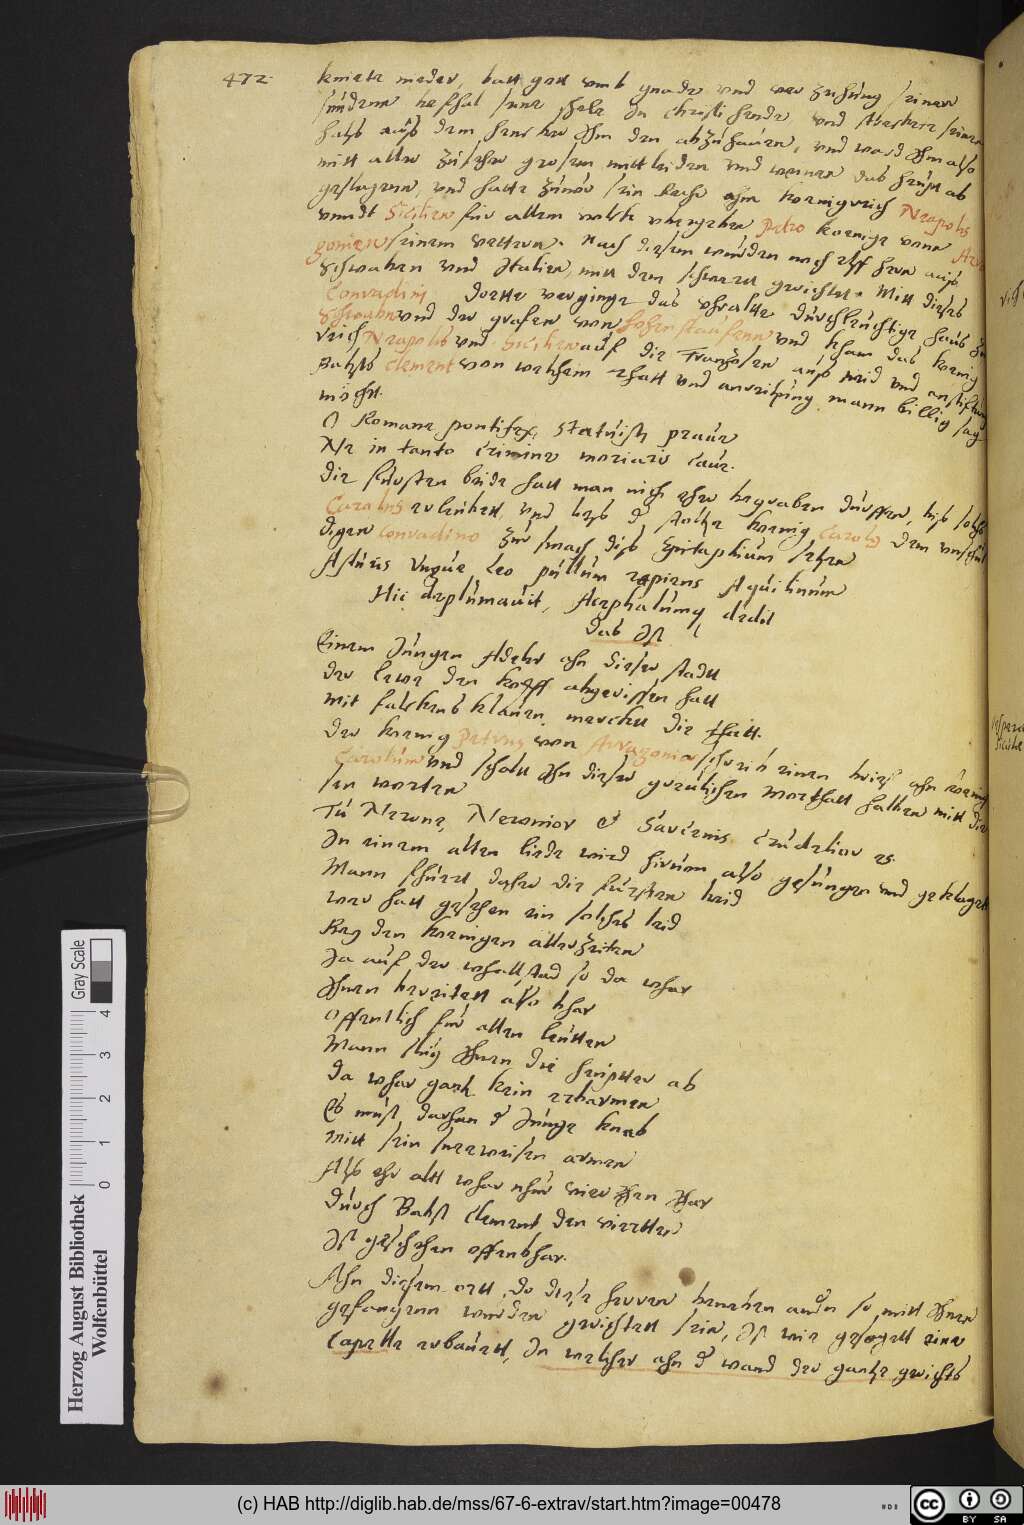 472.
kniete nieder, batt gott umb gnade und ver zeihung seiner
sünden befhal seine seele In Christi hende, und
halß auß dem hencker Ihm den abzuhauen, und ward Ihm also
mitt aller zuseher grosem mittleiden und weinen das heupt ab
geslagenn, und hatte zuvor sein recht ahm koenigreich Neapolis
unndt Sicilien für allem volck ubergeben Petro koenige vonn Arra
gonien seinem vettern. Nach diesem wurden noch elff hern auß
Schwaben und Italien, mitt dem schwertt gerichtet. Mitt dieses
Conradini doette verginge das uhralte durchleuchtige haus zu
Schwaben und der grafen von Hohenstauffenn und kham das koenig
reich Neapolis und Sicilien auf die Frantzosen auß neid und anstiftung
Babsts Clement von welchem rhatt und anreitzung mann billig sag
möcht.
O Romane pontifex, statuisti praue
Ne in tanto crimine moriaris caue.
Die fürsten beide hatt man nich eher begraben dürffen, biß solchs
Carolus erleubett, und ließ d. stoltze koenig Carolus dem unschul
digen Conradino zur smach diß Epitaphium setzen
Asturis ungue Leo pullum rapiens Aquilinum
Hic deplumauit, Acephalumq dedit
Das Ist
Einem Jungen Adeler ahn dieser stadtt
der lewe den kopff abgerissen hatt
mit falckens klauen, mercket die thatt.
der koenig Petrus von Arragonien schreib einen brief ahn koenig
Carolum und schalt Ihn dieser greulichen mordthatt halben mitt die
sen worten
Tu Nerone, Neronior et Saracenis crudelior es.
In einem alten liede wird hirumb also gesungen und geklagett
Mann fhürett daher die fürsten beid
wer hatt gesehen ein solches leid
Bey den koenigen allerzeiten
Da auf der whallstad so da whar
Ihnen bereitett also khar
Offentlich für allen leutten
Mann slug Ihnen die heupter ab
Da whar gantz kein erbarmen
Es must daran d Junge knab
mitt sein sneeweisen armen
Alß ehr altt whar nhur vier zhen Jhar
Durch Babst Clement den vierten
Ist geschehen offenbhar.
Ahn diesem ortt, do diese herren beneben andern so mitt Ihnen
gefangenn wurden gerichtett sein, Ist wie gesagett eine
Capelle erbauett, In welcher ahn d wand der gantze gerichts
Herzog August Bibliothek
Wolfenbüttel
0 1 2 3 4
Gray Scale
(c) HAB http://diglib.hab.de/mss/67-6-extrav/start.htm?image=00478
cc BY SA